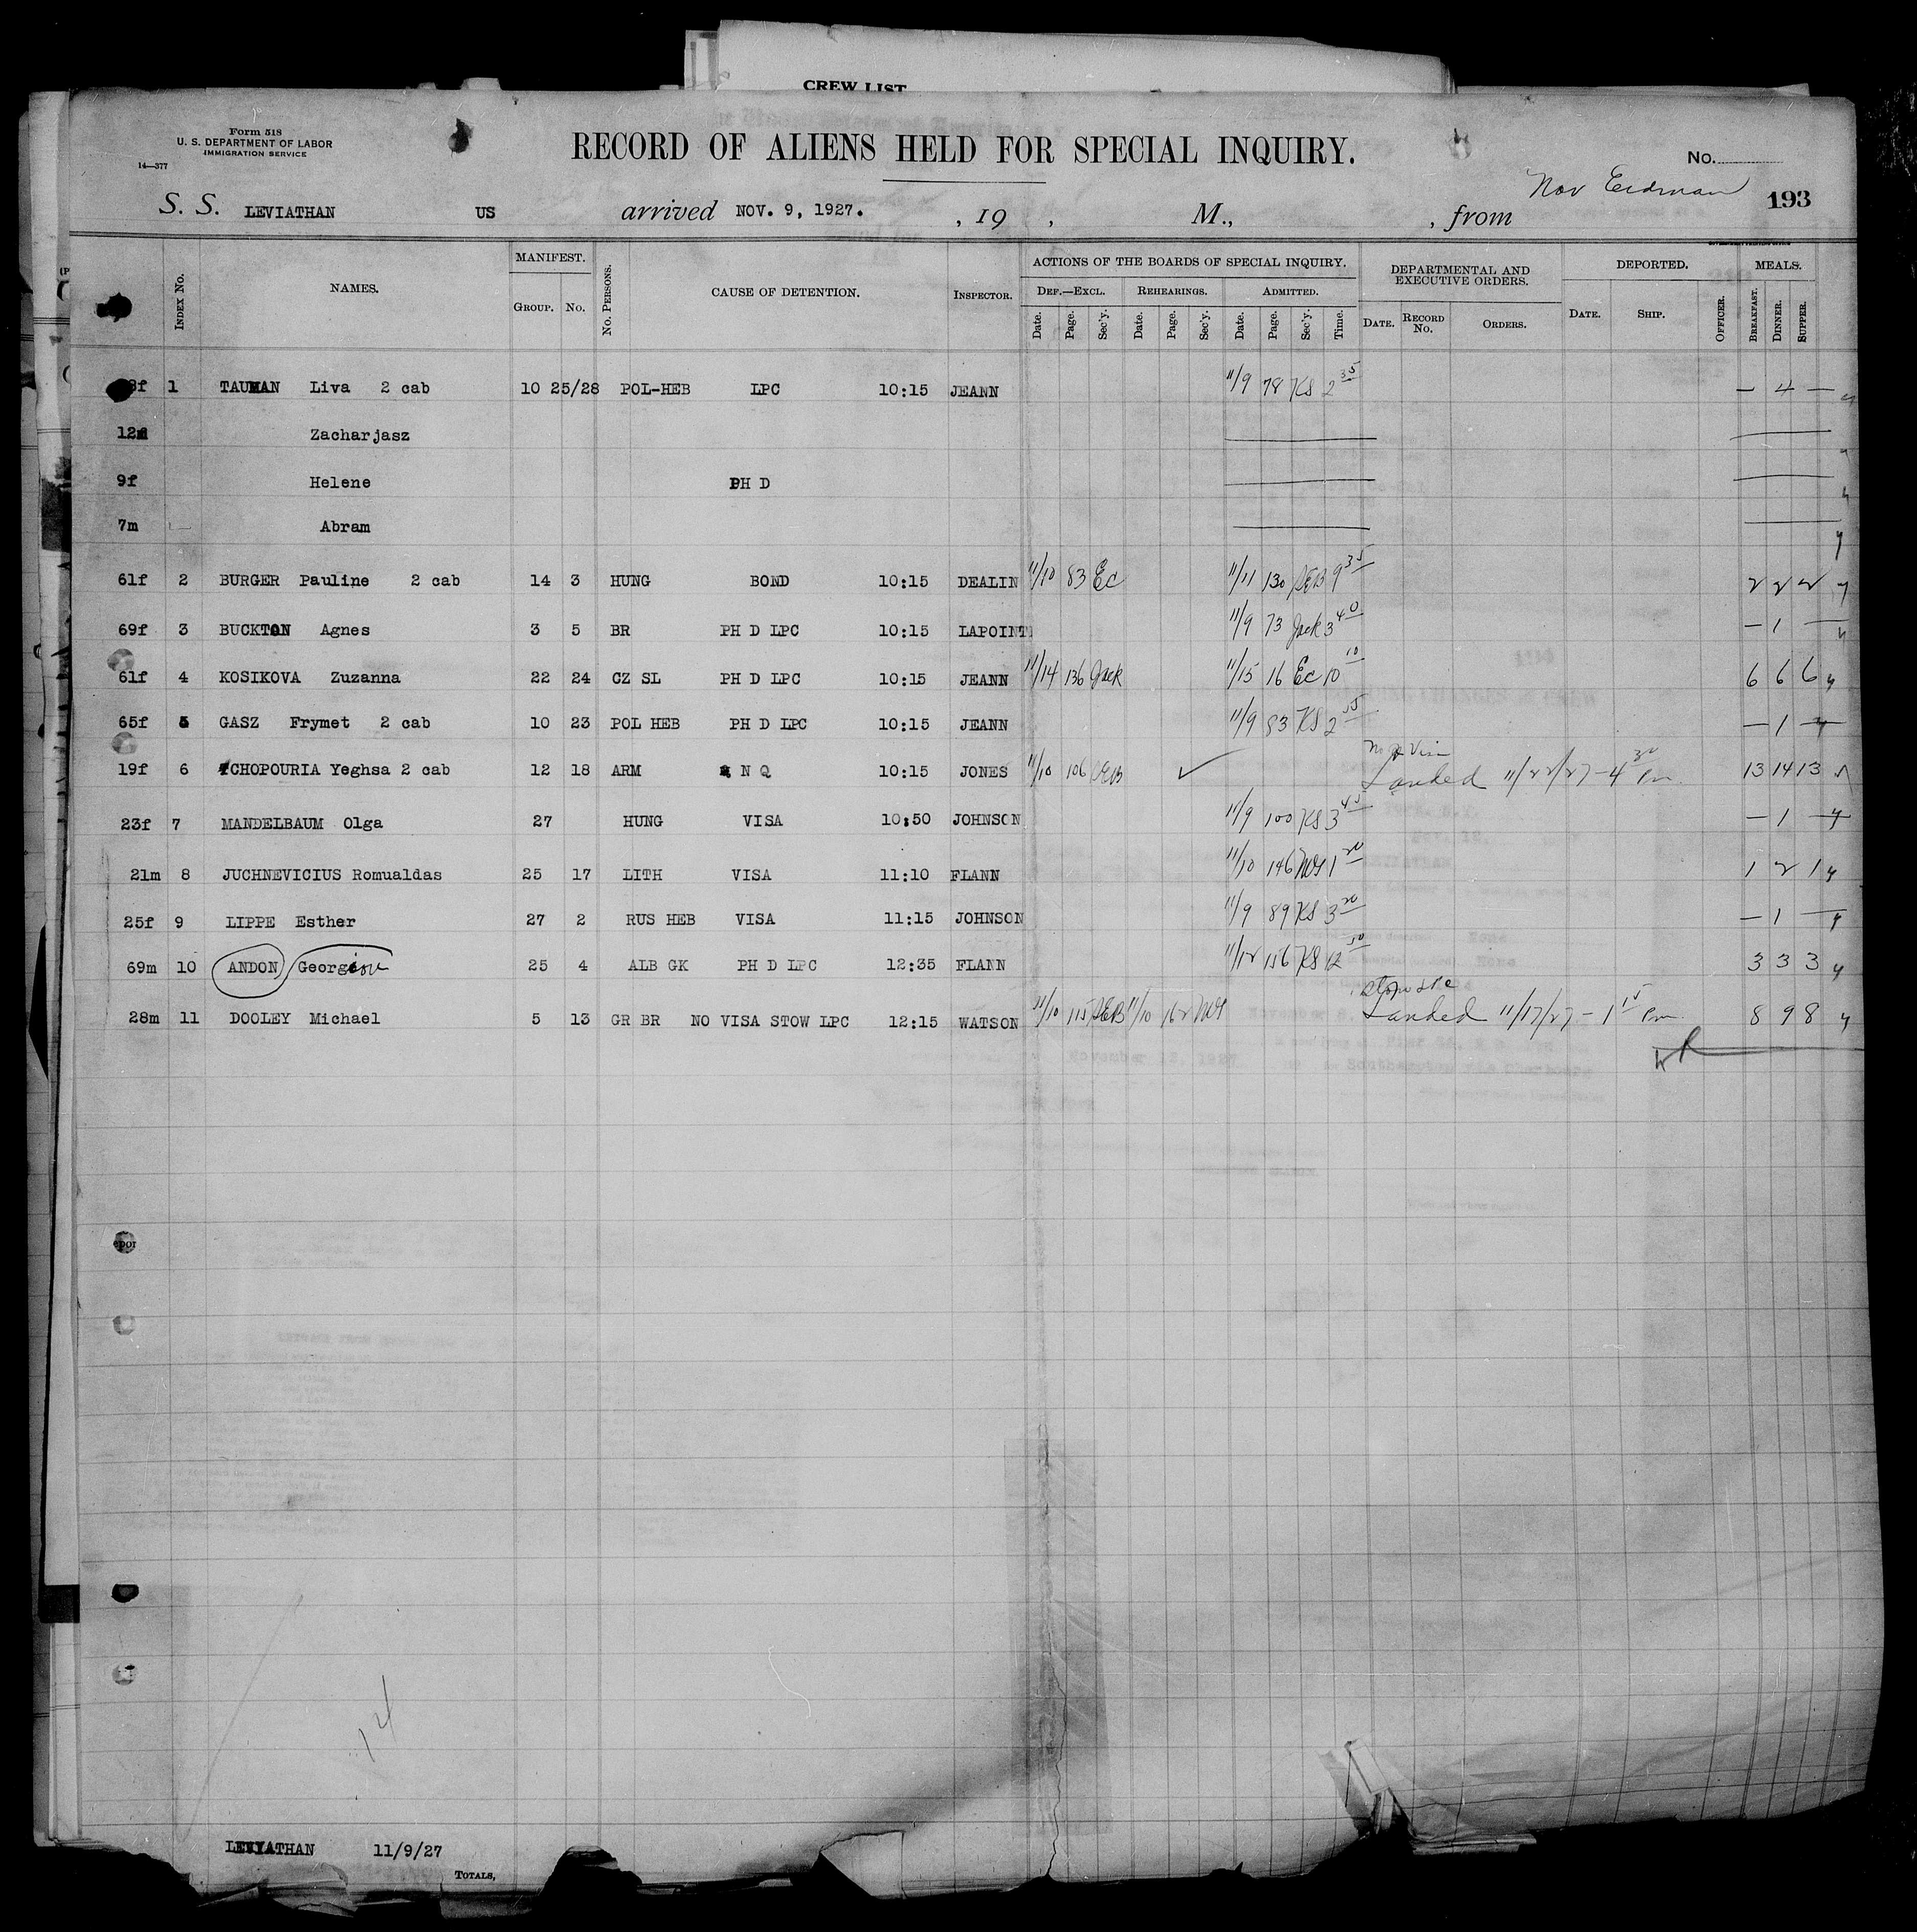 CREW LIST
Form 518
U. S. DEPARTMENT OF LABOR
IMMIGRATION SERVICE
14—377
RECORD OF ALIENS HELD FOR SPECIAL INQUIRY.
No.
193
S. S. LEVIATHAN US arrived NOV. 9, 1927. , 19 , M., , from Nov Erdman
Index No. NAMES. MANIFEST. Group. No. No. Persons. CAUSE OF DETENTION. Inspector. ACTIONS OF THE BOARDS OF SPECIAL INQUIRY. DEPARTMENTAL AND EXECUTIVE ORDERS. DEPORTED. MEALS.
Def.—Excl. Rehearings. Admitted.
Date. Page. Sec'y. Date. Page. Sec'y. Date. Page. Sec'y. Time. Date. Record No. Orders. Date. Ship. Officer. Breakfast. Dinner. Supper.
8f 1 TAUMAN Liva 2 cab 10 25/28 POL-HEB LPC 10:15 JEANN 11/9 78 KS 2 35 — 4 —
12m Zacharjasz
9f Helene PH D
7m Abram
61f 2 BURGER Pauline 2 cab 14 3 HUNG BOND 10:15 DEALIN 11/10 83 Ec 11/11 130 SEB 9 35 2 2 2
69f 3 BUCKTON Agnes 3 5 BR PH D LPC 10:15 LAPOINT 11/9 73 Jack 3 40 — 1 —
61f 4 KOSIKOVA Zuzanna 22 24 CZ SL PH D LPC 10:15 JEANN 11/14 136 Jack 11/15 16 Ec 10 10 6 6 6
65f 5 GASZ Frymet 2 cab 10 23 POL HEB PH D LPC 10:15 JEANN 11/9 83 KS 2 55 — 1 —
19f 6 TCHOPOURIA Yeghsa 2 cab 12 18 ARM N Q 10:15 JONES 11/10 106 SEB ✓ Landed 11/22/27 - 4 30 Pm 13 14 13
23f 7 MANDELBAUM Olga 27 HUNG VISA 10:50 JOHNSON 11/9 100 KS 3 45 — 1 —
21m 8 JUCHNEVICIUS Romualdas 25 17 LITH VISA 11:10 FLANN 11/10 146 1 20 1 2 1
25f 9 LIPPE Esther 27 2 RUS HEB VISA 11:15 JOHNSON 11/9 89 KS 3 20 — 1 —
69m 10 ANDON Georgiou 25 4 ALB GK PH D LPC 12:35 FLANN 11/12 156 KS 12 50 3 3 3
28m 11 DOOLEY Michael 5 13 GR BR NO VISA STOW LPC 12:15 WATSON 11/10 115 SEB 11/10 162 Landed 11/17/27 - 1 15 Pm 8 9 8
14
LEVIATHAN 11/9/27
Totals,